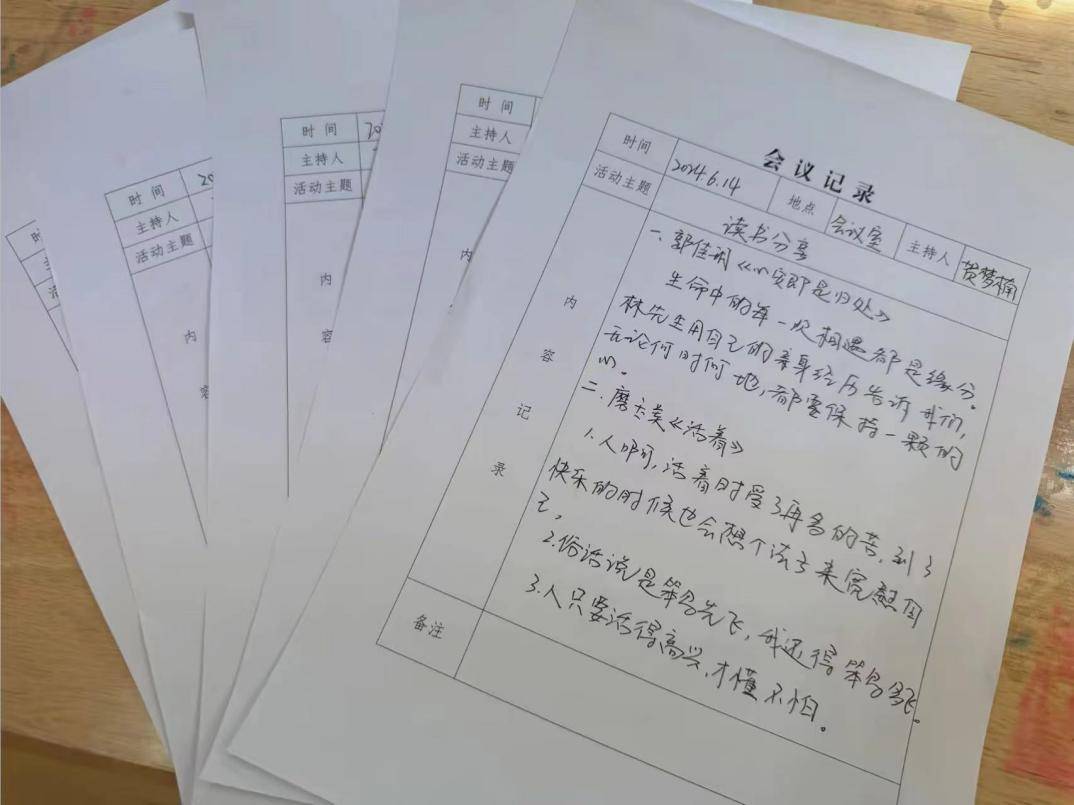 会议记录
时间 2024.6.14 地点 会议室 主持人 贺梦楠
活动主题 读书分享
内容记录
一、郭佳润《心安即是归处》
生命中的每一次相遇都是缘分。
林先生用自己的亲身经历告诉我们,
无论何时何地,都要保持一颗的
心。
二、磨《活着》
1.人啊,活着时受了再多的苦,到了
快乐的时候也会想个法子来宽慰自
己,
2.俗话说是笨鸟先飞,我还得笨鸟多飞。
3.人只要活得高兴,才懂不怕。
备注
时间
主持人
活动主题
内
时间 20
主持人
活动主题
内
容
时间 20
主持人
活动主题
内
容